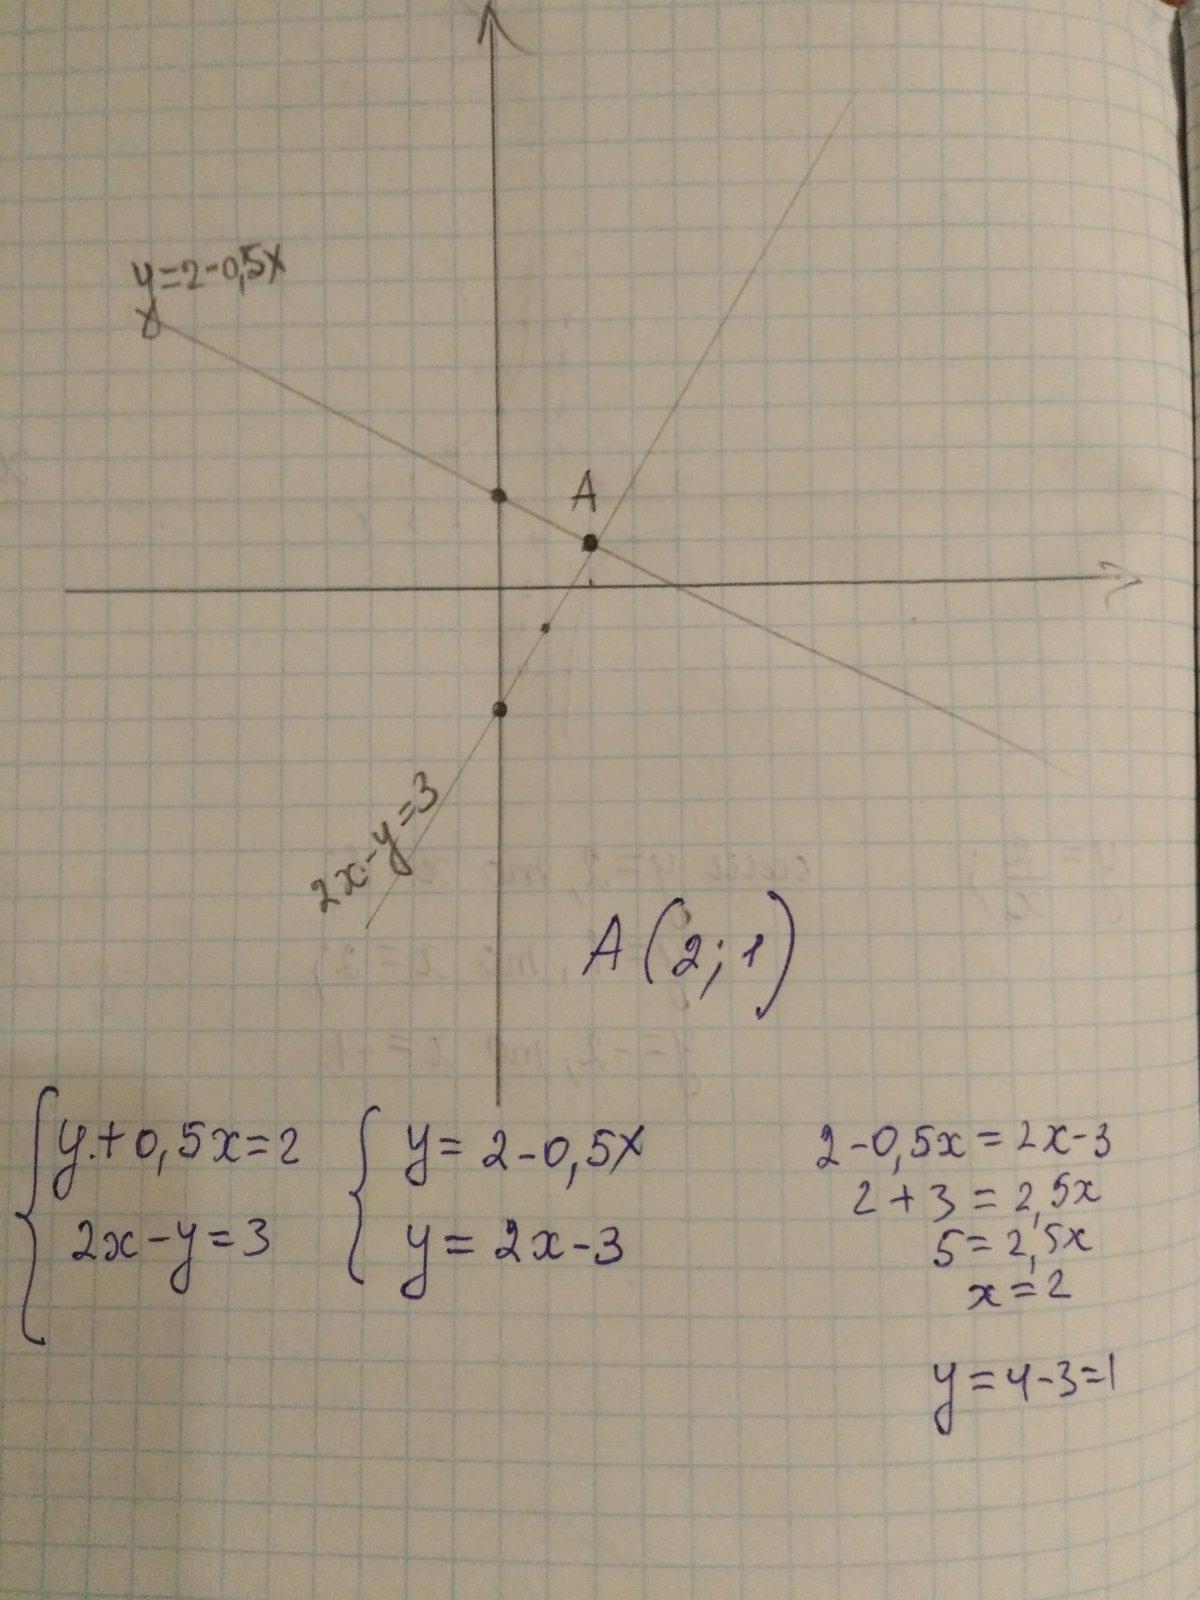 y=2-0,5x
A
2x-y=3
A(2;1)
y+0,5x=2
2x-y=3
y=2-0,5x
y=2x-3
2-0,5x=2x-3
2+3=2,5x
5=2,5x
x=2
y=4-3=1